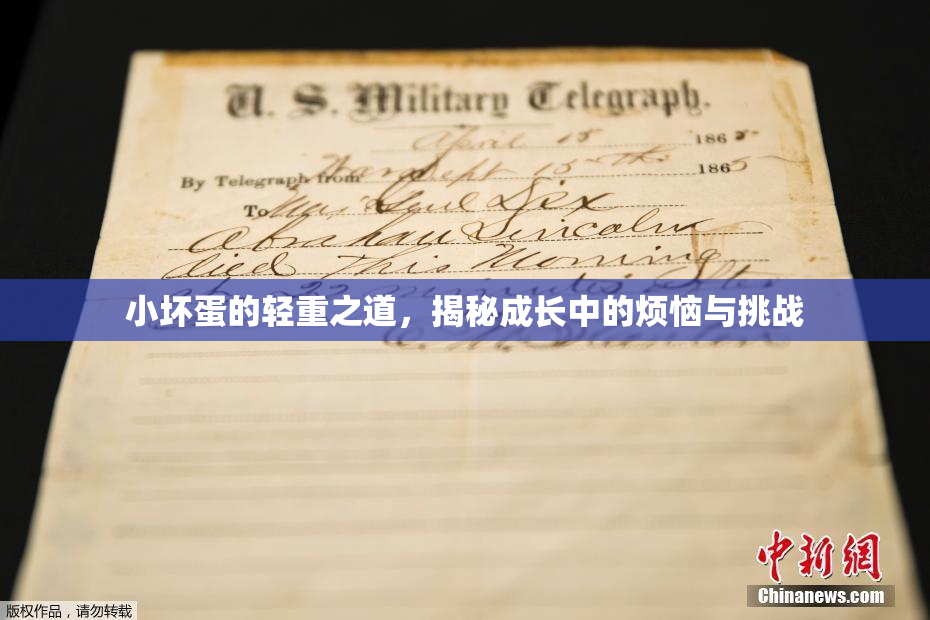 U. S. Military Telegraph.
April 15 1865
By Telegraph from Wash Sept 15th 1865
To Maj Genl Dix
Abraham Lincoln
died This Morning
at 22 minutes after
小坏蛋的轻重之道，揭秘成长中的烦恼与挑战
E. M. Stanton
中新网
Chinanews.com
版权作品，请勿转载